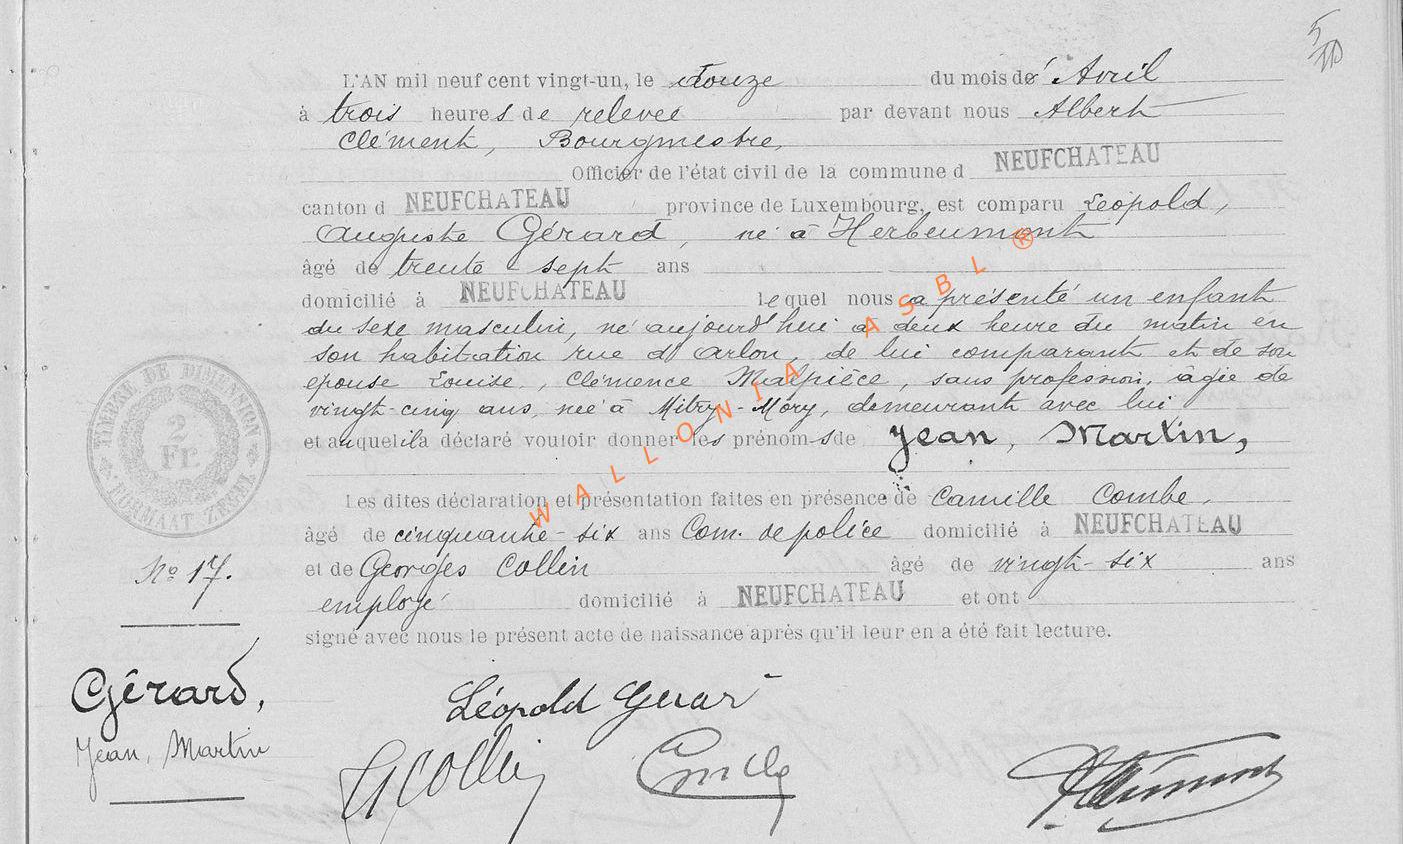 L'AN mil neuf cent vingt-un, le douze du mois de Avril
à trois heures de relevée par devant nous Albert
Clément, Bourgmestre,
Officier de l'état civil de la commune d NEUFCHATEAU
canton d NEUFCHATEAU province de Luxembourg, est comparu Léopold,
Auguste Gérard, né à Herbeumont
âgé de trente-sept ans
domicilié à NEUFCHATEAU lequel nous a présenté un enfant
du sexe masculin, né aujourd'hui à deux heure du matin en
son habitation rue d'Arlon, de lui comparant et de son
épouse Louise, Clémence Malpièce, sans profession, âgée de
vingt-cinq ans, née à Mitry-Mory, demeurant avec lui
et auquel il a déclaré vouloir donner les prénoms de Jean, Martin,
Les dites déclaration et présentation faites en présence de Camille Combe,
âgé de cinquante-six ans Com. de police domicilié à NEUFCHATEAU
et de Georges Collin âgé de vingt-six ans
employé domicilié à NEUFCHATEAU et ont
signé avec nous le présent acte de naissance après qu'il leur en a été fait lecture.
TIMBRE DE DIMENSION
2
Fr.
FORMAAT ZEGEL
No 17.
Gérard,
Jean, Martin
Léopold Gerard
G Collin
WALLONIA ASBL ®